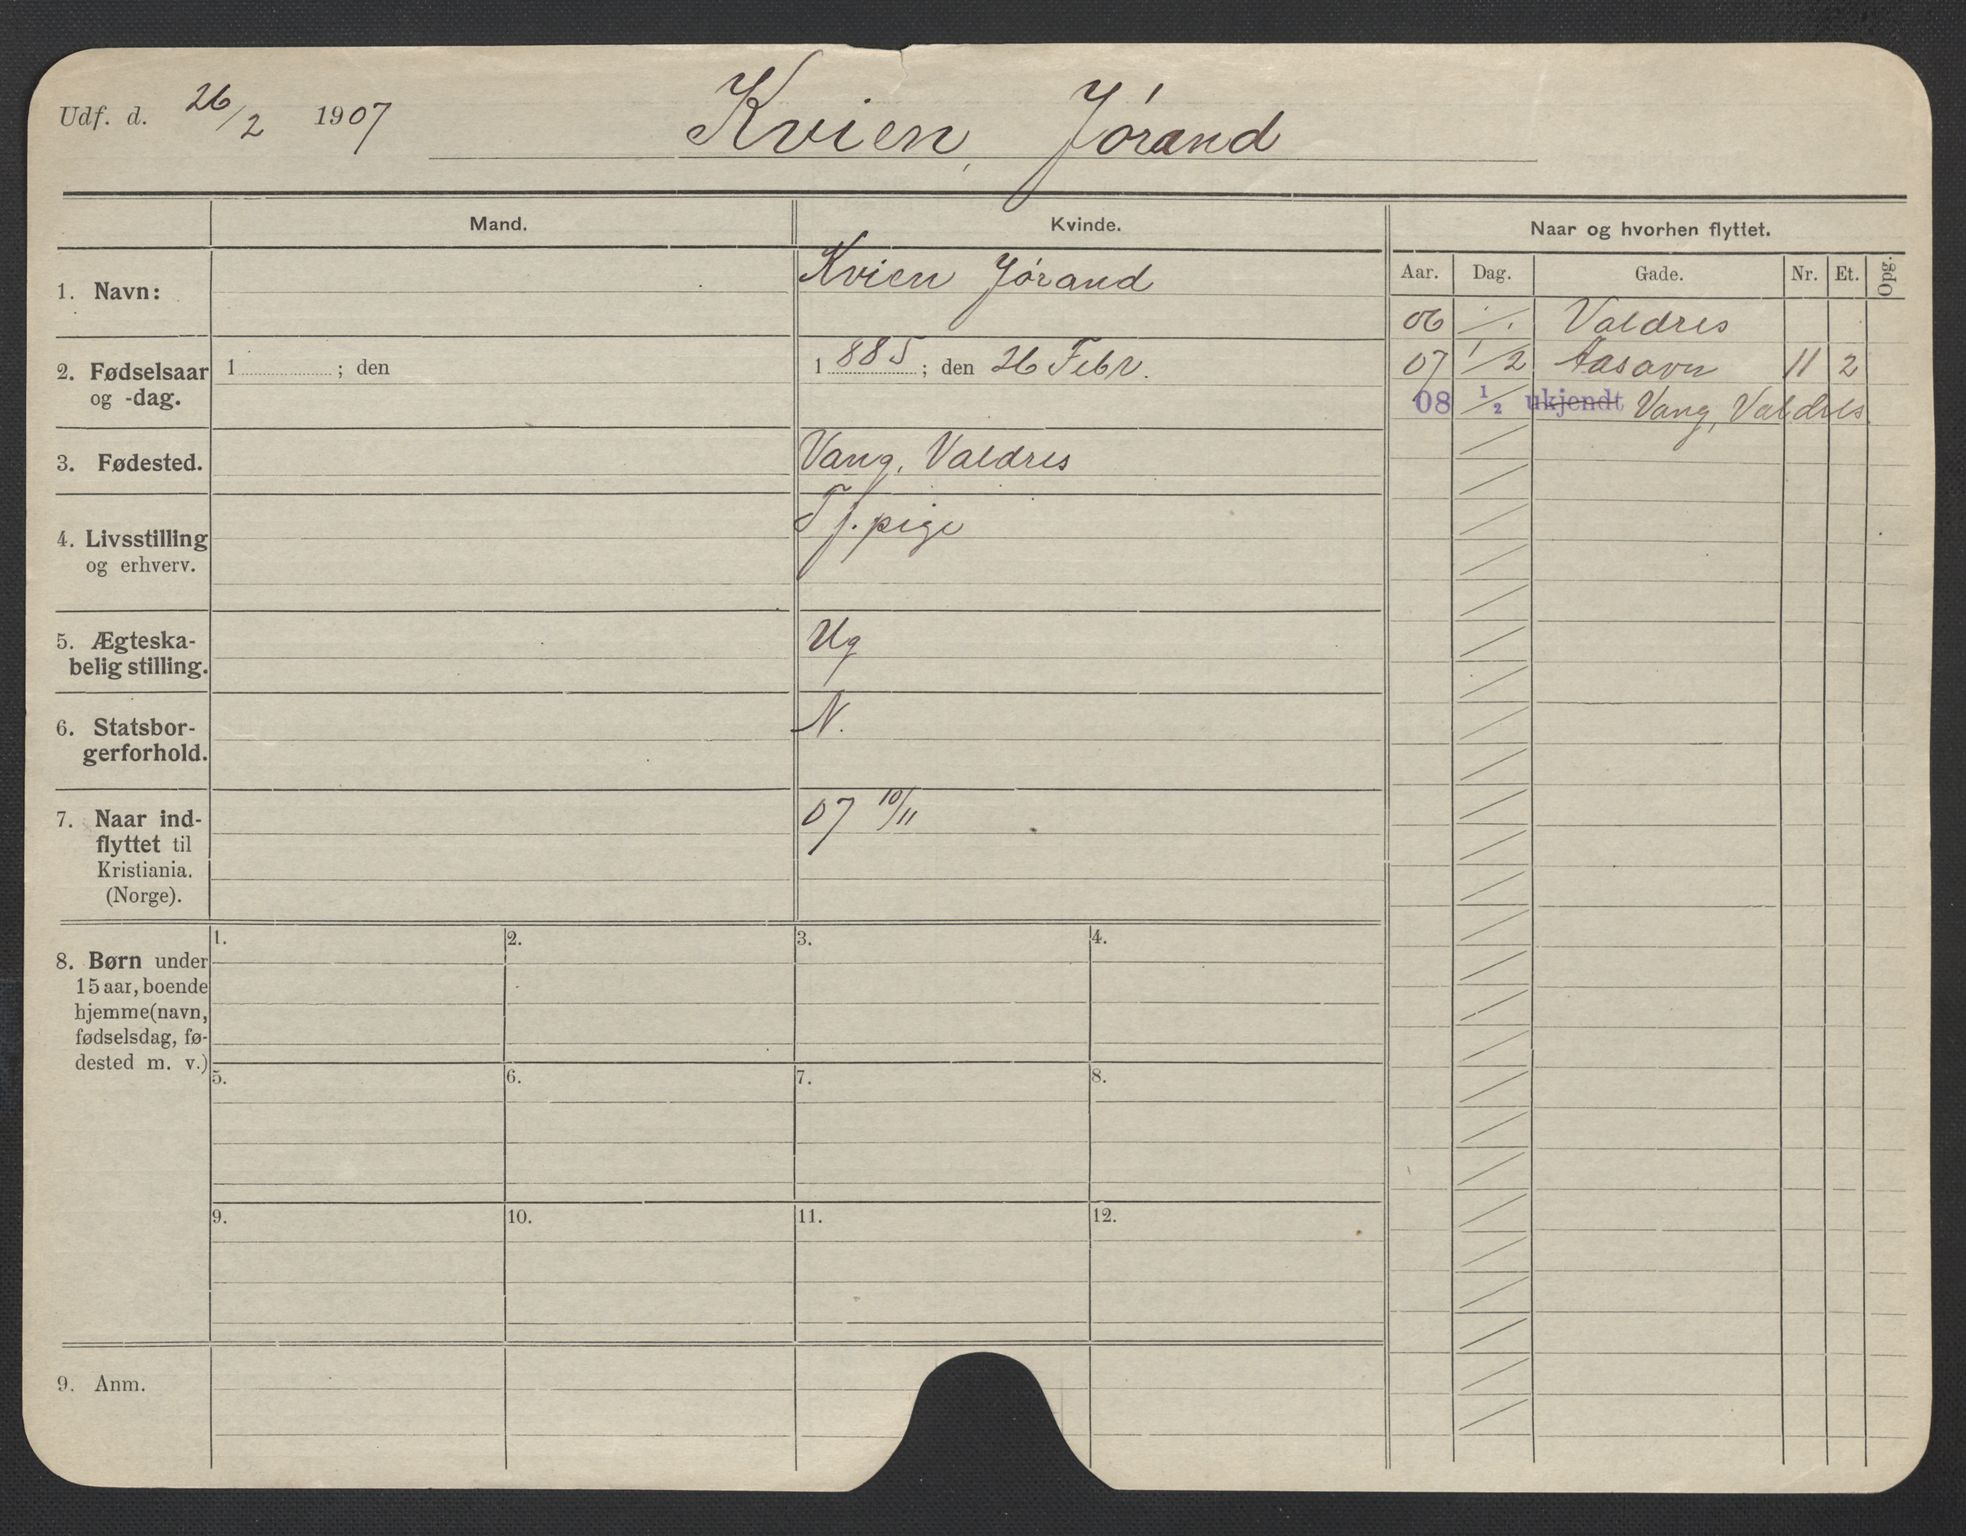 Udf. d. 26/2 1907 Kvien, Jórand
Mand. Kvinde. Naar og hvorhen flyttet.
Aar. Dag. Gade. Nr. Et. Opg.
1. Navn: Kvien Jórand
06 ·/· Valdres
2. Fødselsaar og -dag. 1 ; den 1885 ; den 26 Febr.
07 1/2 Aasavn 11 2
08 1/2 ukjendt Vang, Valdres
3. Fødested. Vang, Valdres
4. Livsstilling og erhverv. Tj. pige
5. Ægteska-
belig stilling. Ug
6. Statsbor-
gerforhold. N.
7. Naar ind-
flyttet til
Kristiania.
(Norge). 07 10/11
8. Børn under
15 aar, boende
hjemme (navn,
fødselsdag, fø-
dested m. v.)
1. 2. 3. 4.
5. 6. 7. 8.
9. 10. 11. 12.
9. Anm.